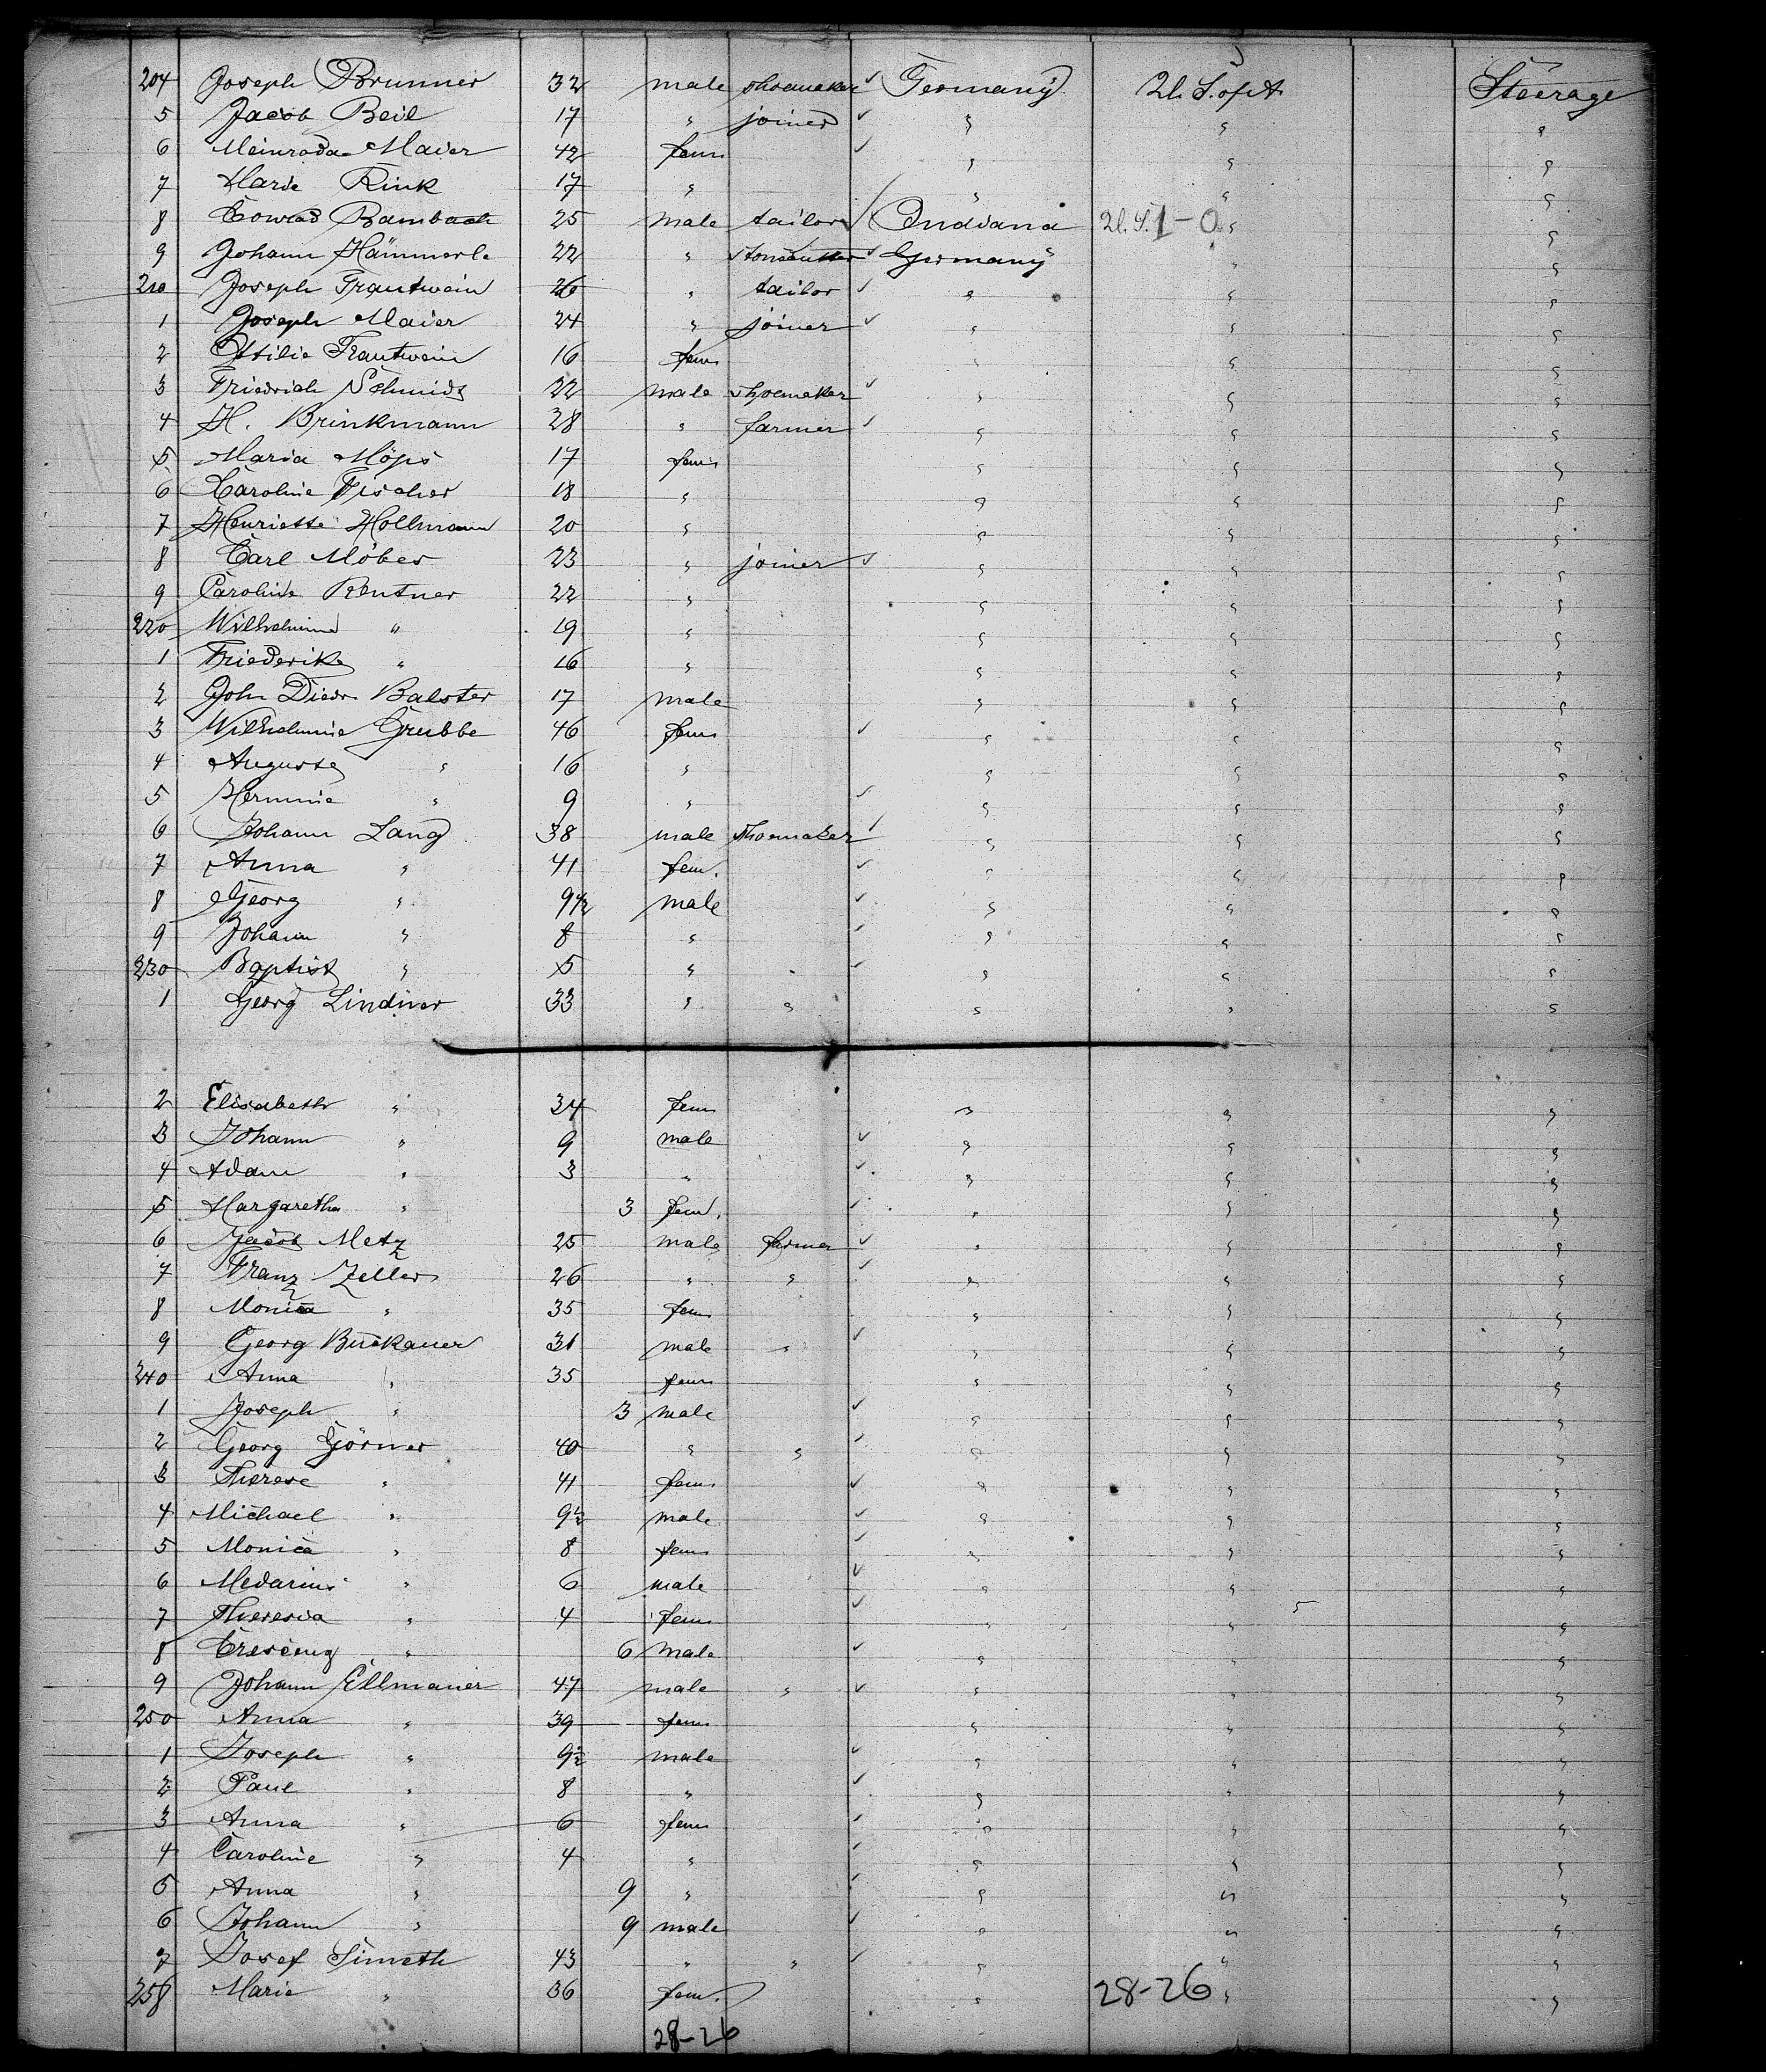 204 Joseph Brunner 32 male shoemaker ✓ Germany U. S. of A. Steerage
5 Jacob Beil 17 " joiner ✓ " " "
6 Meinrada Maier 42 fem ✓ " " "
7 Marie Rink 17 " " " "
8 Conrad Bambach 25 male tailor ✓ Indiana U. S. 1-0 " "
9 Johann Hämmerle 22 " stonecutter ✓ Germany " "
210 Joseph Trautwein 26 " tailor ✓ " " "
1 Joseph Maier 24 " joiner ✓ " " "
2 Ottilie Trautwein 16 fem " " "
3 Friedrich Schmidt 22 male shoemaker ✓ " " "
4 H. Brinkmann 28 " farmer ✓ " " "
5 Maria Möps 17 fem " " "
6 Caroline Fischer 18 " " " "
7 Henriette Hollmann 20 " " " "
8 Carl Möber 23 " joiner ✓ " " "
9 Caroline Rentner 22 " " " "
220 Wilhelmine " 19 " " " "
1 Friederike " 16 " " " "
2 John Diedr. Balster 17 male " " "
3 Wilhelmine Grubbe 46 fem ✓ " " "
4 Auguste " 16 " " " "
5 Hermine " 9 " ✓ " " "
6 Johann Lang 38 male shoemaker ✓ " " "
7 Anna " 41 fem. ✓ " " "
8 Georg " 9 1/2 male ✓ " " "
9 Johann " 8 " ✓ " " "
230 Baptist " 5 " ✓ " " "
1 Georg Lindner 33 " " " " "
2 Elisabeth " 34 fem " " "
3 Johann " 9 male ✓ " " "
4 Adam " 3 " ✓ " " "
5 Margaretha " 3 fem. ✓ " " "
6 Jacob Metz 25 male farmer ✓ " " "
7 Franz Zeller 26 " " ✓ " " "
8 Monica " 35 fem " " "
9 Georg Buckauer 31 male " ✓ " " "
240 Anna " 35 fem " " "
1 Joseph " 3 male ✓ " " "
2 Georg Görner 40 " " ✓ " " "
3 Therese " 41 fem ✓ " " "
4 Michael " 9 1/2 male ✓ " " "
5 Monica " 8 fem ✓ " " "
6 Medarius " 6 male ✓ " " "
7 Theresia " 4 fem ✓ " " "
8 " 6 male ✓ " " "
9 Johann Ellmauer 47 male " ✓ " " "
250 Anna " 39 fem " " "
1 Joseph " 9 1/2 male ✓ " " "
2 Paul " 8 " ✓ " " "
3 Anna " 6 fem ✓ " " "
4 Caroline " 4 " ✓ " " "
5 Anna " 9 " ✓ " " "
6 Johann " 9 male ✓ " " "
7 Josef Simeth 43 " " ✓ " " "
258 Marie " 36 fem. " 28-26 " "
28-26